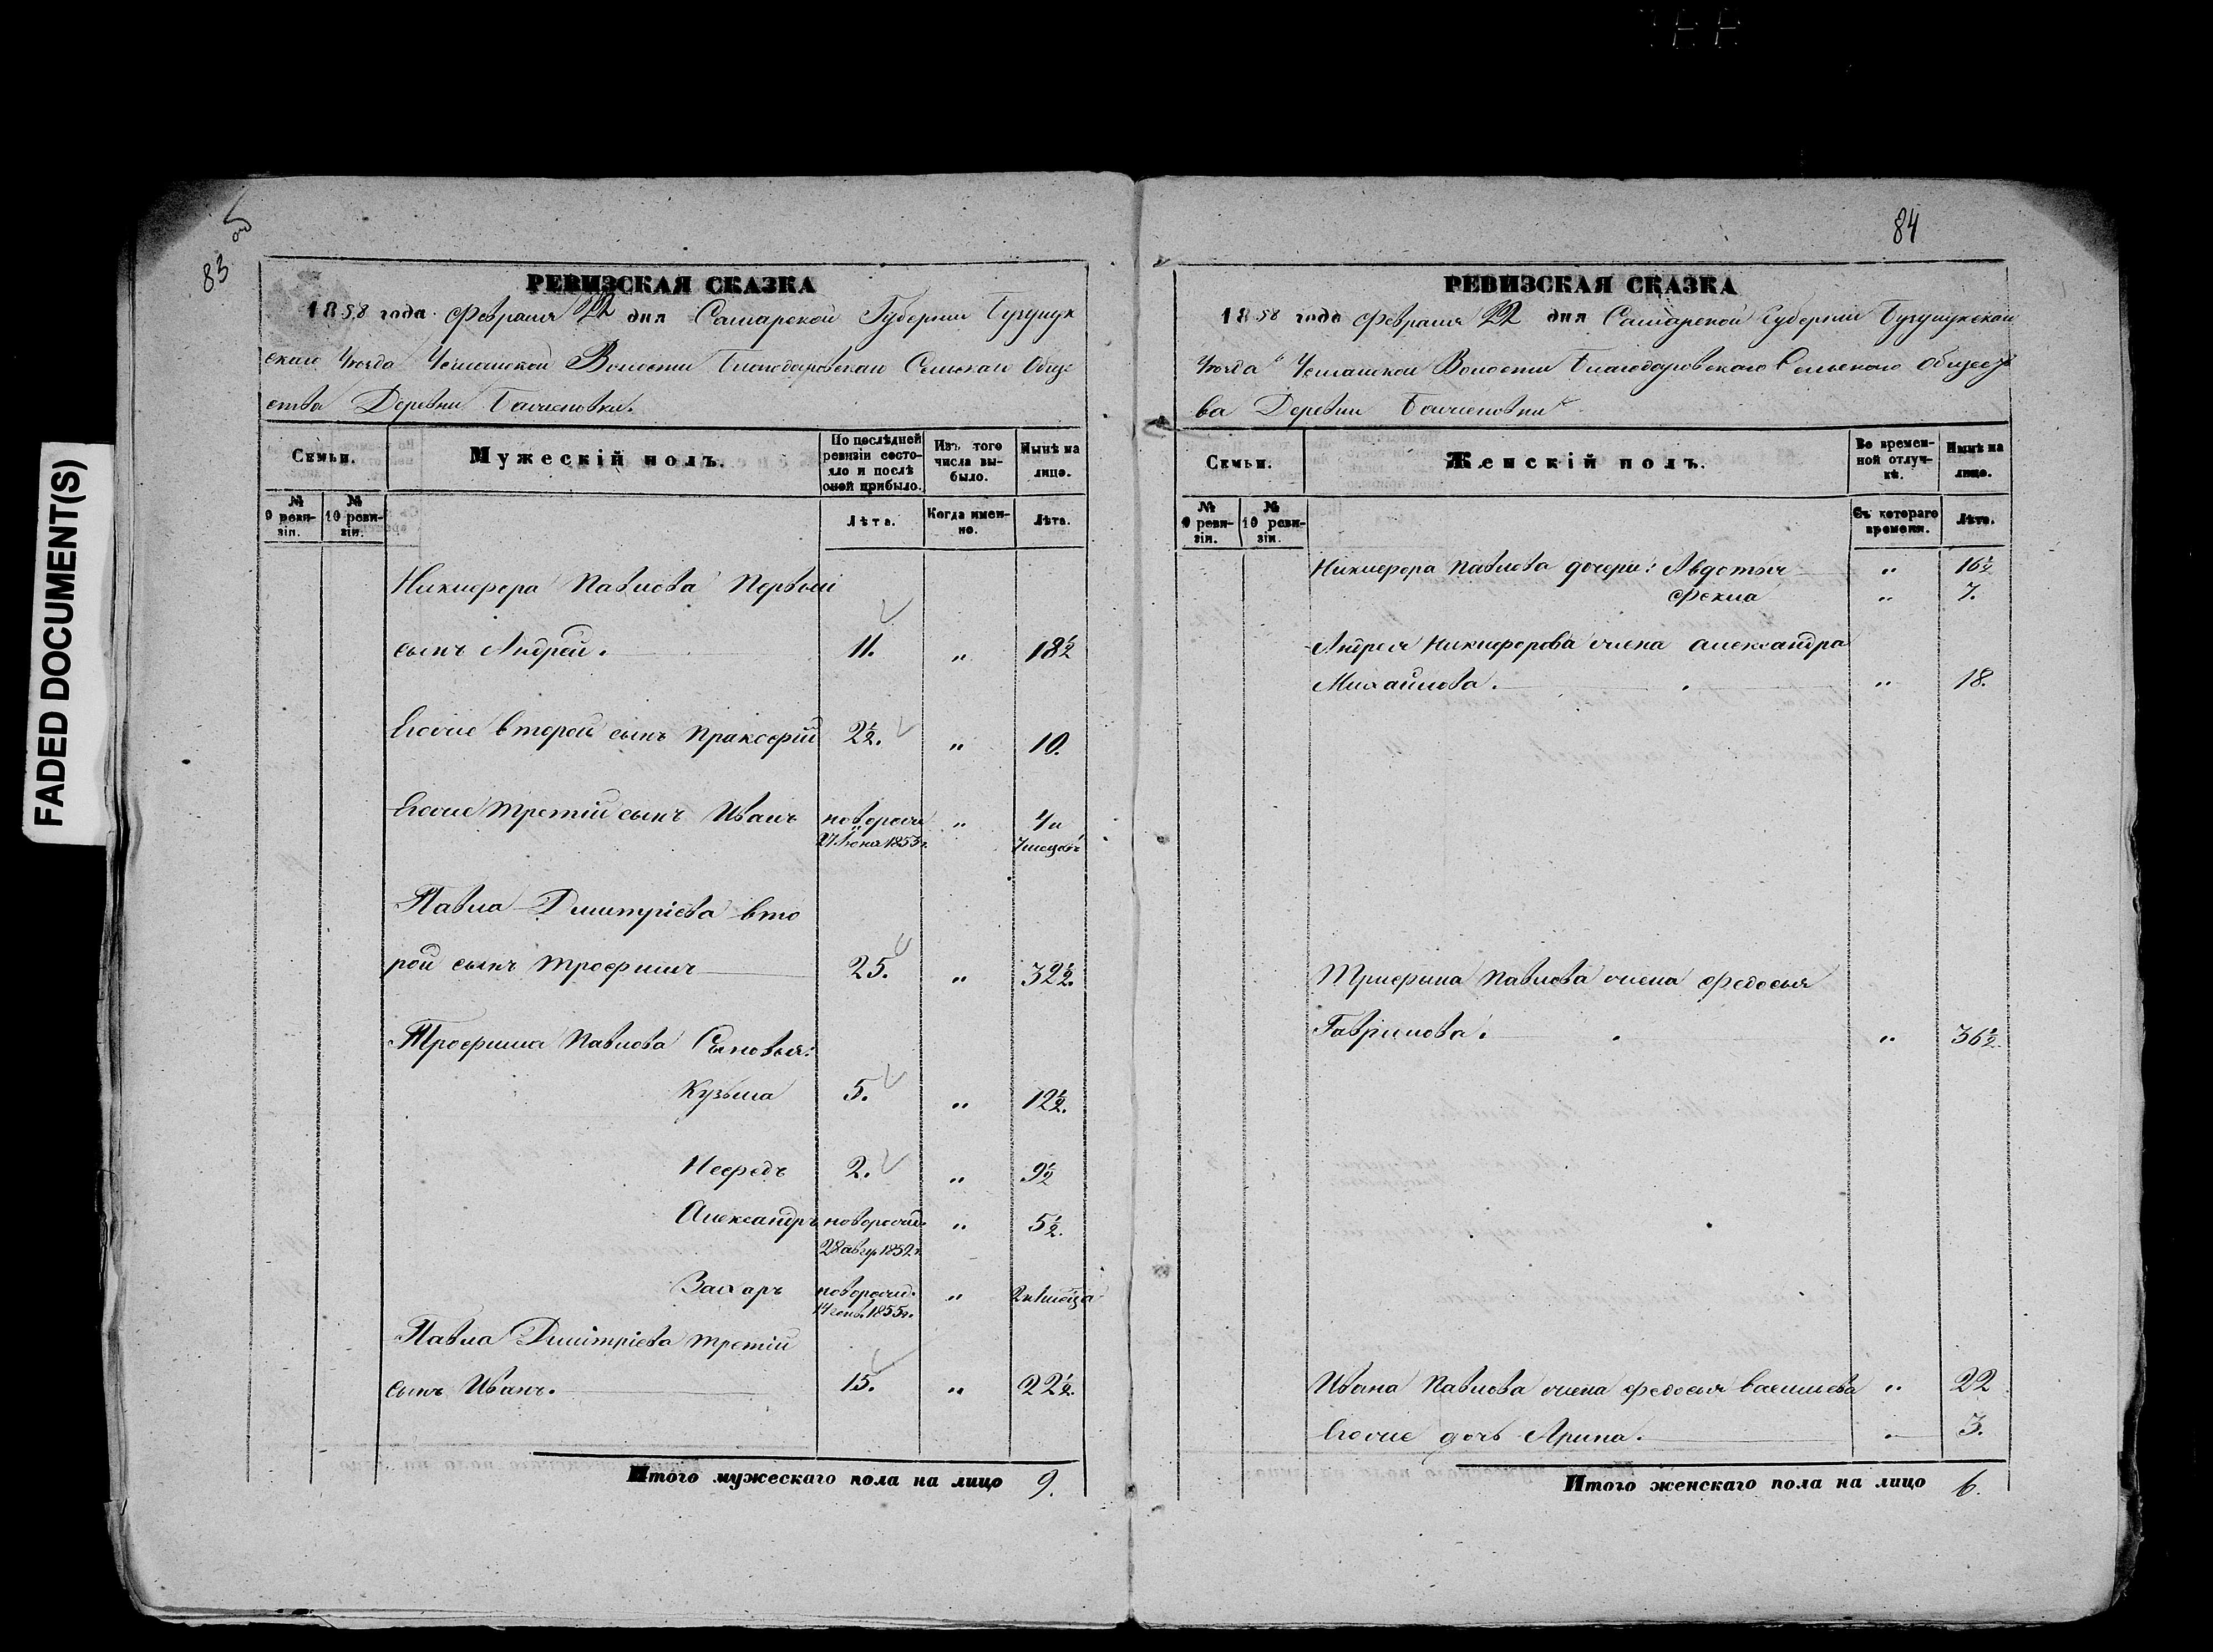 FADED DOCUMENT(S)
83
РЕВИЗСКАЯ СКАЗКА
1858 года Февраля 22 дня Самарской Губерніи Бузулук
скаго Уѣзда Волости Сельскаго Обще
ства Деревни
Семьи.
Мужескій полъ.
По послѣдней ревизіи состояло и послѣ оной прибыло.
Изъ того числа выбыло.
Нынѣ на лицо.
№ 9 ревизіи.
№ 10 ревизіи.
Лѣта.
Когда именно.
Лѣта.
Никифора Павлова Первый
сынъ Андрей. 11. " 18½
Егоже второй сынъ Пракофій 2½. " 10.
Егоже третій сынъ Иванъ новорож " 4 и
27 Іюня 1853 г. 7 мецовъ
Павла Дмитріева вто
рой сынъ Трофимъ 25. " 32½.
Трофима Павлова Сыновья:
Кузьма 5. " 12½.
Нефедъ 2. " 9½
Александръ новорожд. " 5½.
28 авгу. 1852 г.
Захаръ новорожд. " 2 и
1855 г.
Павла Дмитріева третій
сынъ Иванъ. 15. " 22½.
Итого мужескаго пола на лицо 9.
84
РЕВИЗСКАЯ СКАЗКА
1858 года Февраля 22 дня Самарской Губерніи Бузулукской
Уѣзда Волости Благодаровскаго Сельскаго Обществ
ва Деревни
Семьи.
Женскій полъ.
Во временной отлучкѣ.
Нынѣ на лицо.
№ 9 ревизіи.
№ 10 ревизіи.
Съ котораго времени.
Лѣта.
Никифора Павлова дочери: Авдотья " 16½
Фекла " 7.
Андрея Никифорова жена александра
Михайлова. " 18.
Трифина Павлова жена федосья
Гаврилова. " 36½.
Ивана Павлова жена федосья васильева " 22
Егоже дочь Арина. " 3.
Итого женскаго пола на лицо 6.